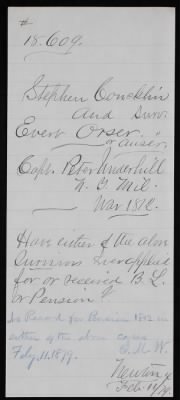 #
18.609.
Stephen Concklin
and Surv.
Evert Orser. "
or auser,
Capt. Peter Underhill
N. Y. Mil.
War 1812.
Have either of the above
survivors ever applied
for or received B. L.
or Pension?
No Record for Pension 1812 in
either of the above cases
Feby. 11. 1879. E. M. W.
Feb. 10/79.